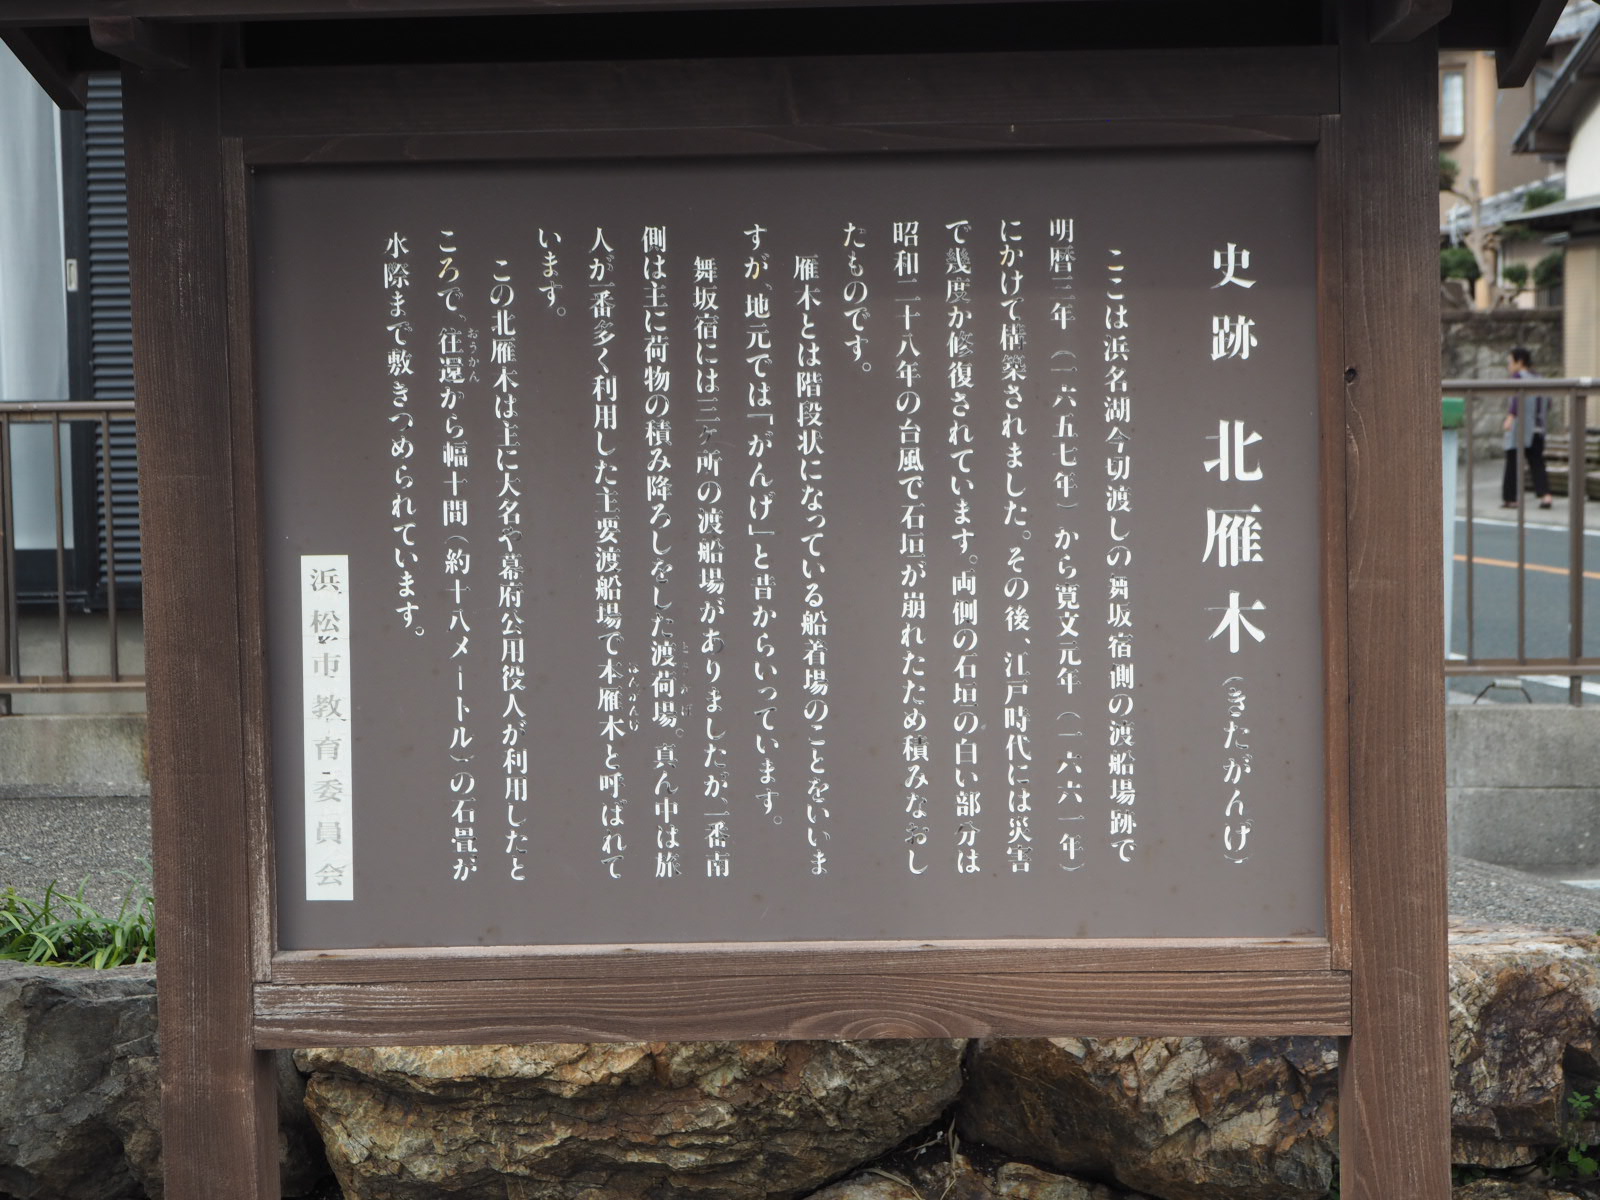 史跡 北雁木(きたがんげ)
ここは浜名湖今切渡しの舞坂宿側の渡船場跡で
明暦三年(一六五七年)から寛文元年(一六六一年)
にかけて構築されました。その後、江戸時代には災害
で幾度か修復されています。両側の石垣の白い部分は
昭和二十八年の台風で石垣が崩れたため積みなおし
たものです。
雁木とは階段状になっている船着場のことをいいま
すが、地元では「がんげ」と昔からいっています。
舞坂宿には三ヶ所の渡船場がありましたが、一番南
側は主に荷物の積み降ろしをした渡荷場。真ん中は旅
人が一番多く利用した主要渡船場で本雁木と呼ばれて
います。
この北雁木は主に大名や幕府公用役人が利用したと
ころで、往還から幅十間(約十八メートル)の石畳が
おうかん
水際まで敷きつめられています。
浜松市教育委員会